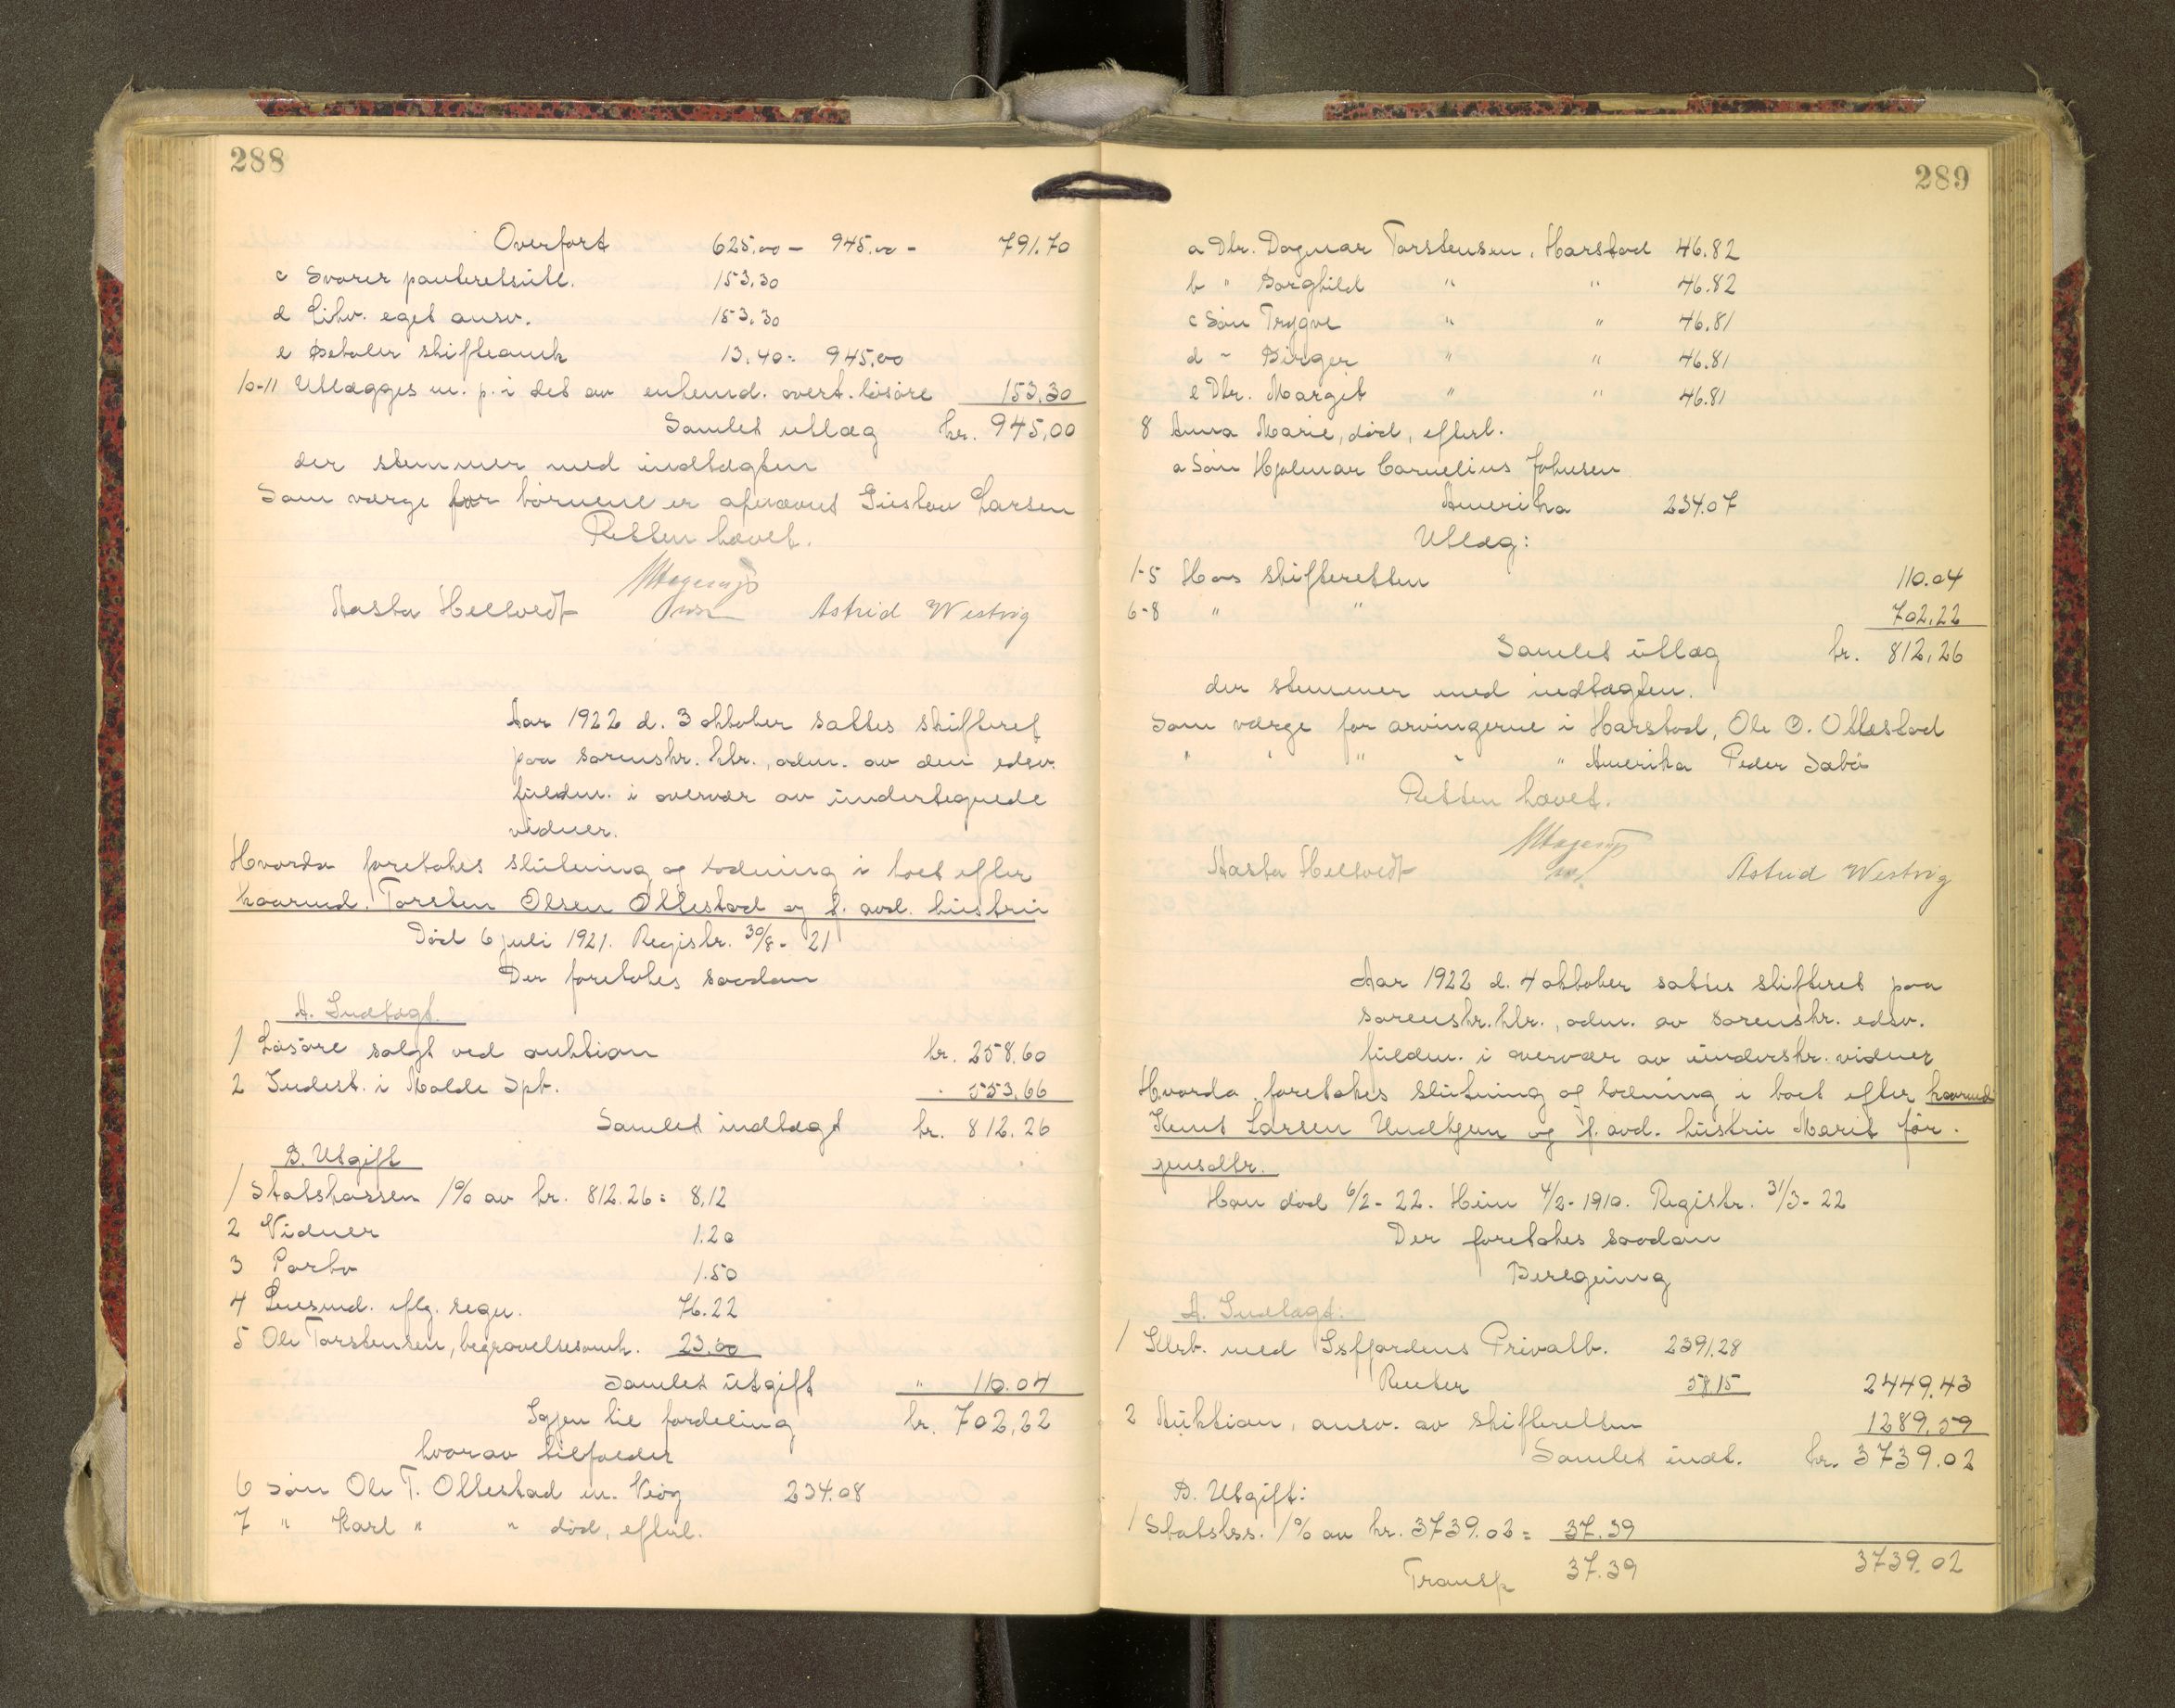 288
Overført 625.00 - 945.00 - 791.70
c Svarer panteretsutl. 153.30
d Likv. eget ansv. 153.30
e Betaler skifteomk 13.40 = 945,00
10-11 Utlægges m. p. i det av enkemd. overt. løsøre 153.30
Samlet utlæg kr. 945,00
der stemmer med indtægten
Som værge for børnene er opnævnt Gustav Larsen
Retten hævet.
Aasta Helsvedt Astrid Westvig
Aar 1922 d. 3 oktober sattes skifteret
paa sorenskr. ktr., adm. av den edsv.
fuldm. i overvær av undertegnede
vidner.
Hvorda foretokes slutning og lodning i boet efter
kaarmd. Torsten Olsen Ottestad og f. avd. hustru
Død 6 juli 1921. Registr. 30/8 - 21
Der foretokes saadan
A. Indtægt.
1 Løsøre solgt ved auktion kr. 258.60
2 Indest. i Molde Spb. - 553.66
Samlet indtægt kr. 812.26
B. Utgift
1 Statskassen 1% av kr. 812.26 = 8,12
2 Vidner 1.20
3 Porto 1.50
4 Lensmd. iflg. regn. 76.22
5 Ole Torstensen, begravelsesomk. 23.00
Samlet utgift " 110.04
Igjen til fordeling kr. 702,22
hvorav tilfalder
6 Søn Ole T. Ottestad m. Veøy 234.08
7 " Karl " " død, efterl.
289
a Dtr. Dagmar Torstensen, Harstad 46.82
b " Borghild " " 46.82
c Søn Trygve " " 46.81
d " Birger " " 46.81
e Dtr. Margit " " 46.81
8 Anna Marie, død, efterl.
a Søn Hjalmar Cornelius Johnsen
Amerika 234.07
Utlæg:
1-5 Hos skifteretten 110.04
6-8 " " 702,22
Samlet utlæg kr. 812,26
der stemmer med indtægten.
Som værge for arvingerne i Harstad, Ole O. Ottestad
" " " " " Amerika Peder Sabø
Retten hævet.
Aasta Helsvedt Astrid Westvig
Aar 1922 d. 4 oktober sattes skifteret paa
sorenskr. ktr., adm. av sorenskr. edsv.
fuldm. i overvær av underskr. vidner
Hvorda foretokes slutning og lodning i boet efter kaarmd
Knut Larsen Undhjem og f. avd. hustru Marit Jør-
gensdtr.
Han død 6/2 - 22. Hun 4/2 - 1910. Registr. 31/3 - 22
Der foretokes saadan
Beregning
A. Indtægt:
1 Klrb. med Isfjordens Privatb. 2391.28
Renter 58.15 2449.43
2 Auktion, ansv. av skifteretten 1289.59
Samlet indt. kr. 3739.02
B. Utgift:
1 Statskss. 1% av kr. 3739.02 = 37.39
Transp 37.39 3739.02